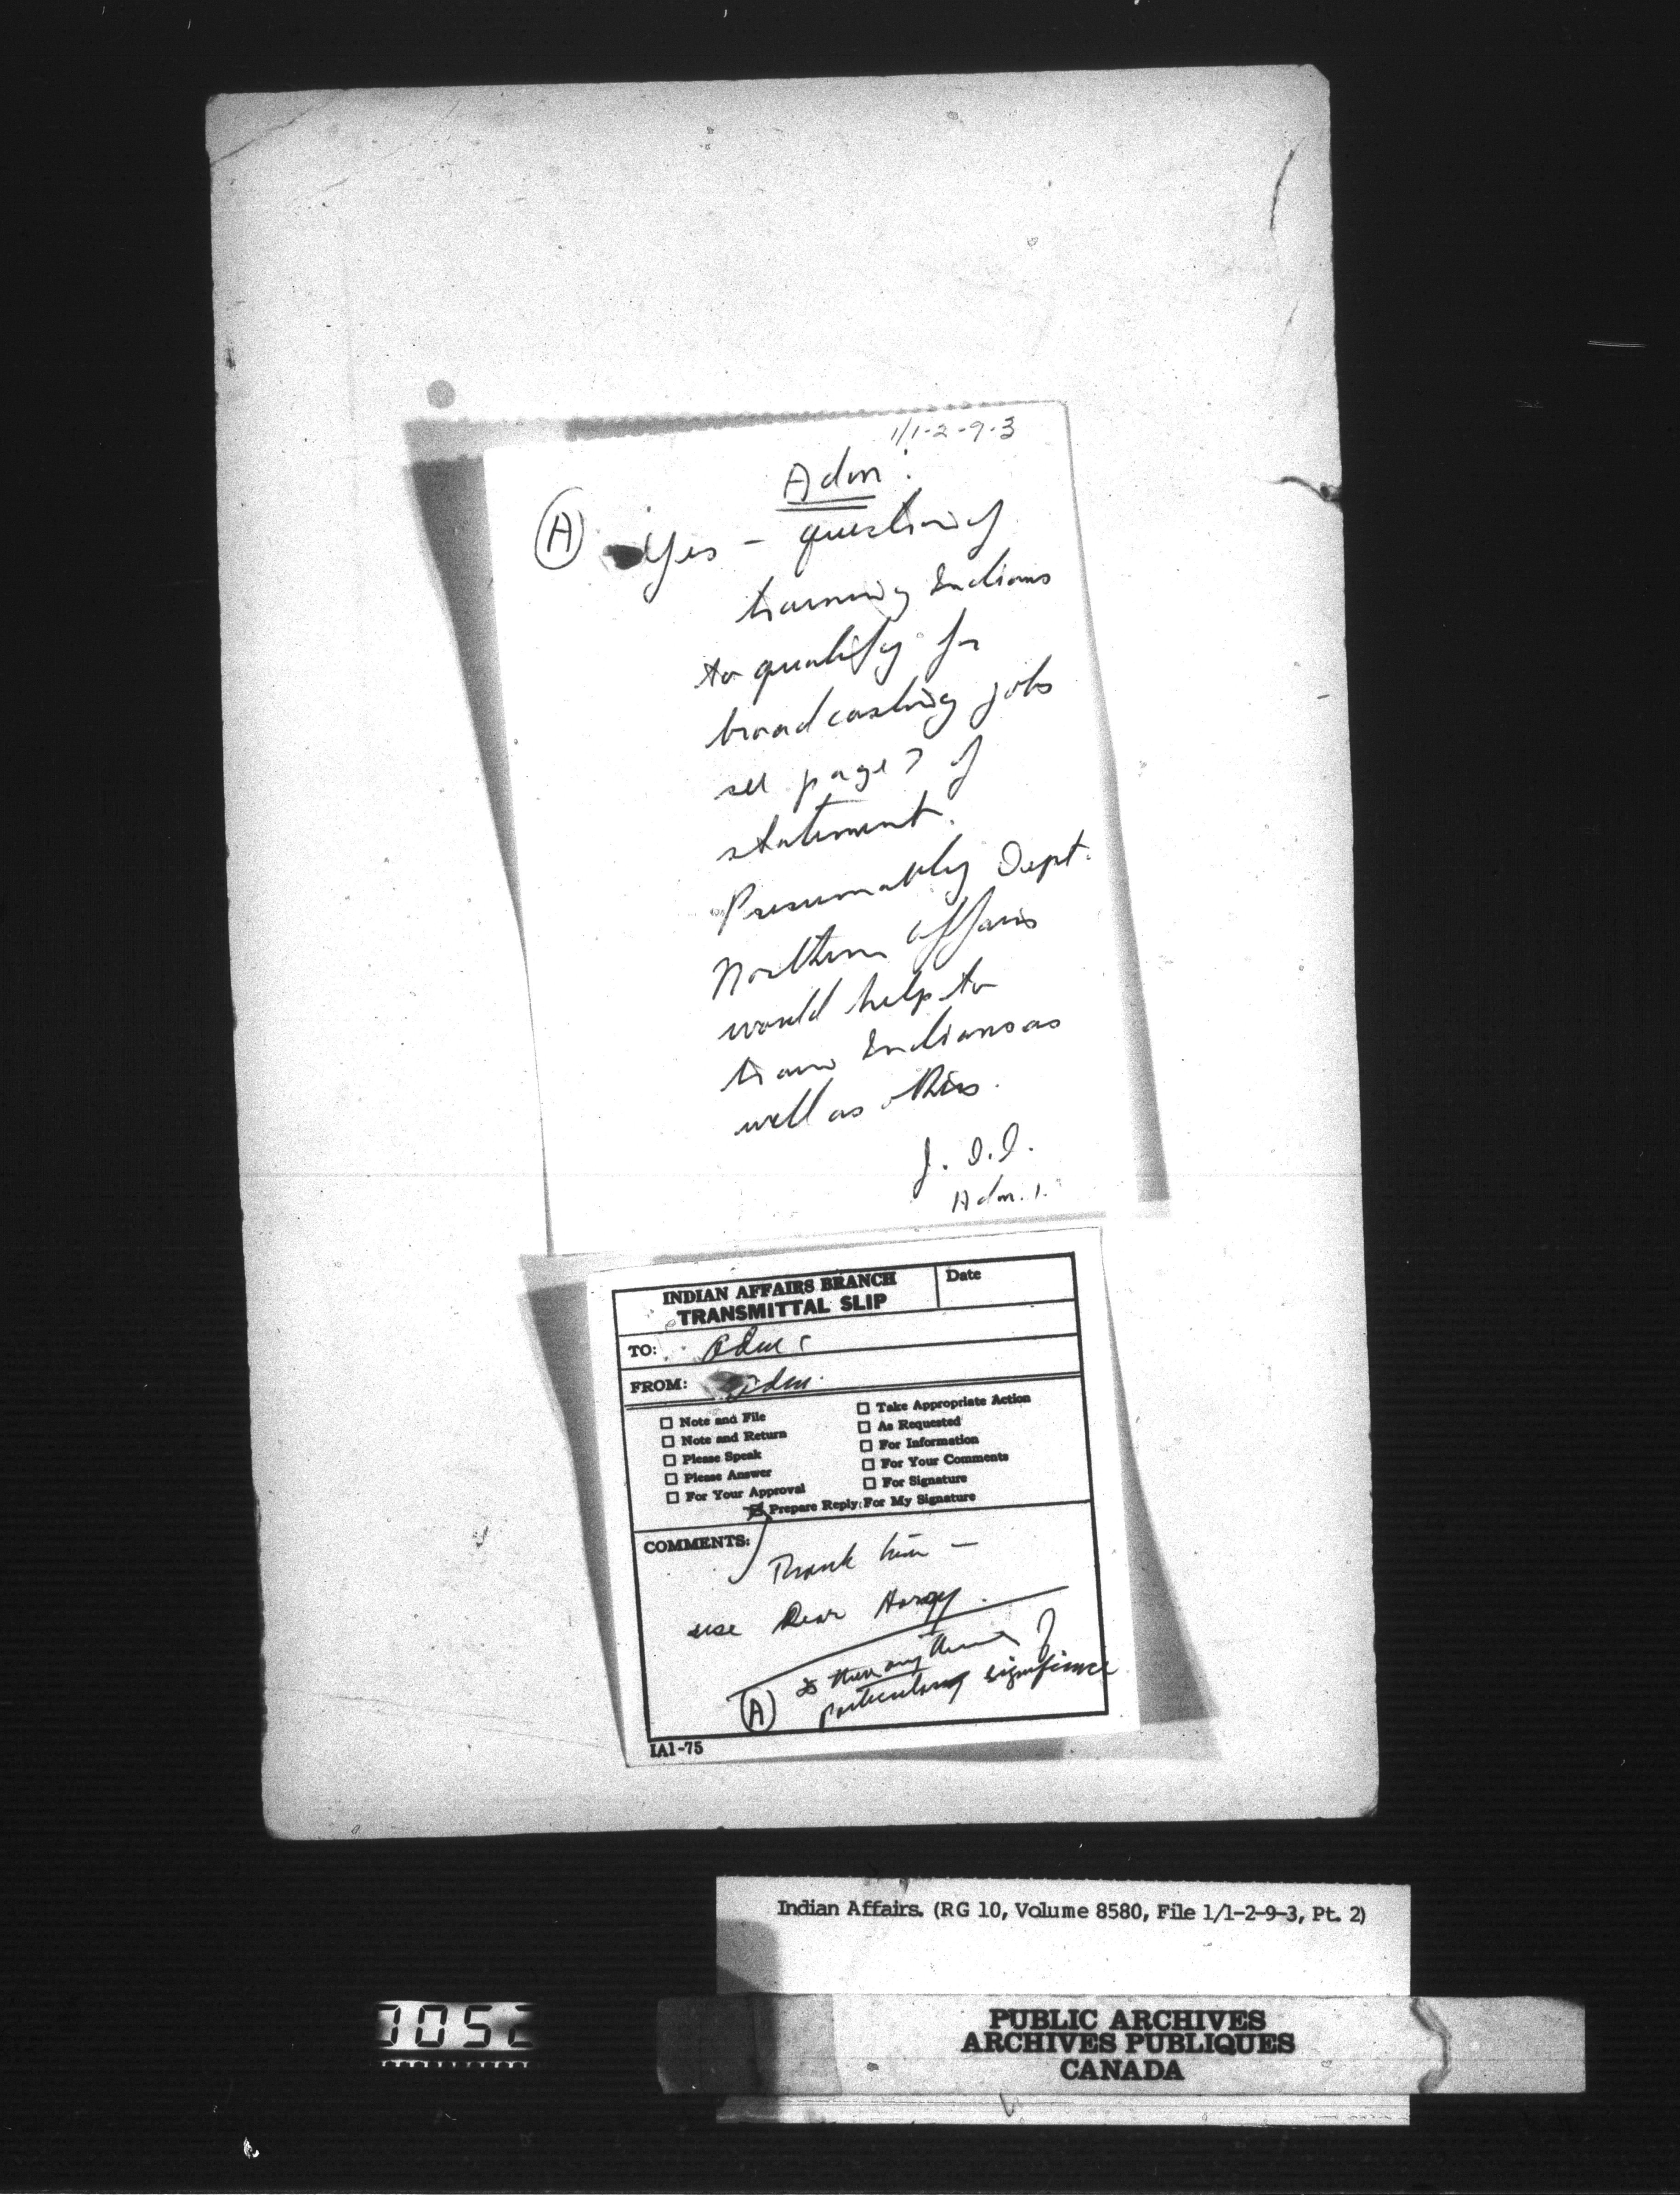 1/1-2-9-3
Adm:
(A) Yes - question of
training Indians
to qualify for
broadcasting jobs
see page 7 of
statement.
Presumably Dept.
Northern Affairs
would help to
train Indians as
well as others.
J. D. D.
Adm. 1.
INDIAN AFFAIRS BRANCH
TRANSMITTAL SLIP
Date
TO:
FROM: Adm.
Note and File
Note and Return
Please Speak
Please Answer
For Your Approval
Take Appropriate Action
As Requested
For Information
For Your Comments
For Signature
Prepare Reply: For My Signature
COMMENTS:
Thank him -
use Dear Harry.
(A) Is there any thing ?
particularly significance
IA1-75
Indian Affairs. (RG 10, Volume 8580, File 1/1-2-9-3, Pt. 2)
PUBLIC ARCHIVES
ARCHIVES PUBLIQUES
CANADA